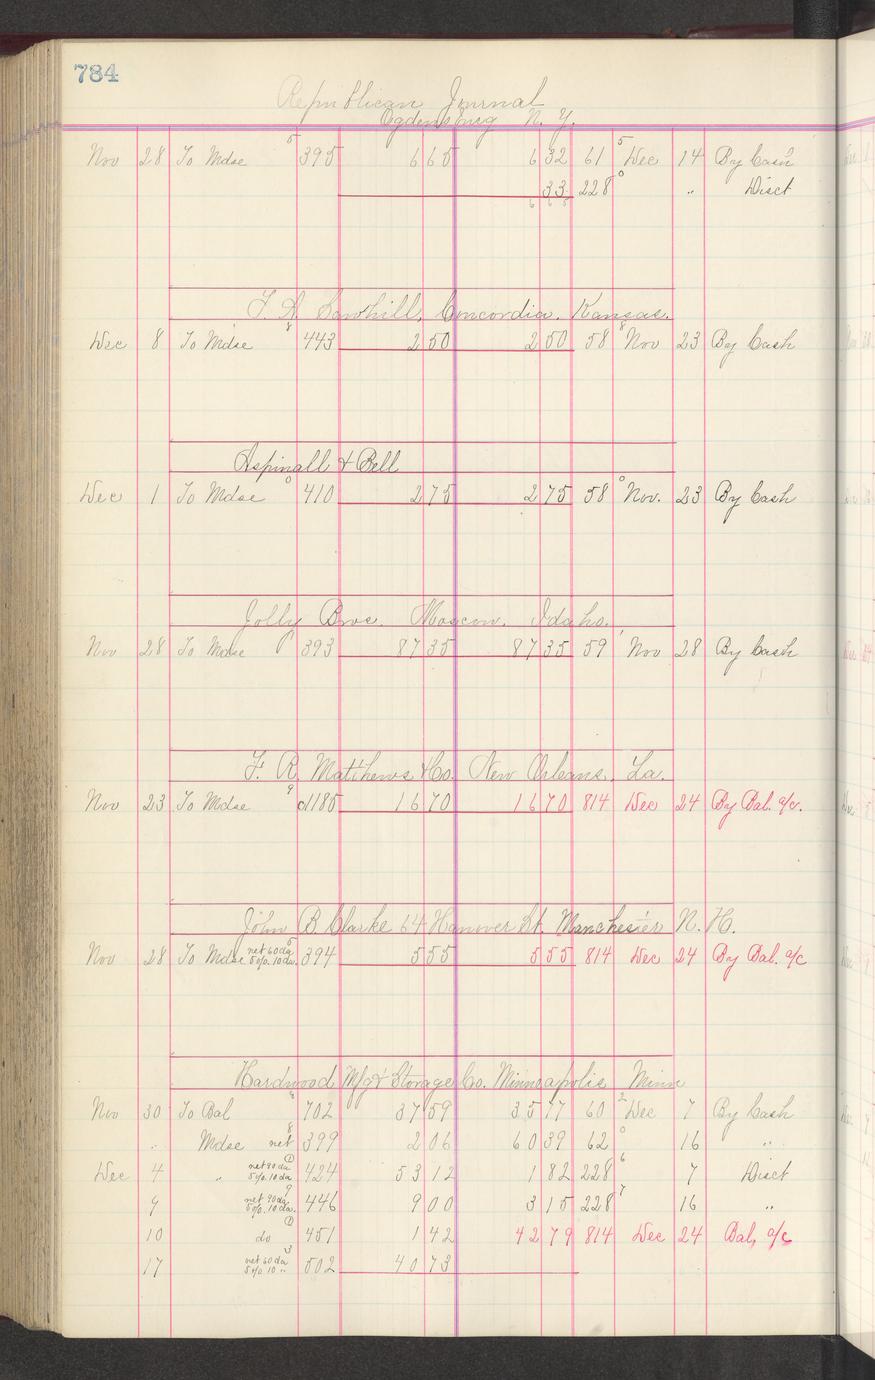 784
Republican Journal
Ogdensburg N. Y.
Nov 28 To Mdse 5 395 6 65 6 32 61 5 Dec 14 By Cash
33 228 0 " Disct
6 6 5
F. A. Sawhill, Concordia, Kansas.
Dec 8 To Mdse 8 443 2 50 2 50 58 8 Nov 23 By Cash
Aspinall & Bell
Dec 1 To Mdse 0 410 2 75 2 75 58 0 Nov. 23 By Cash
Jolly Bros. Moscow, Idaho.
Nov 28 To Mdse 393 87 35 87 35 59 1 Nov 28 By Cash
F. R. Matthews & Co. New Orleans, La.
Nov 23 To Mdse 9 1185 16 70 16 70 814 Dec 24 By Bal. a/c.
John B Clarke 64 Hanover St. Manchester N. H.
Nov 28 To Mdse net 60 da 5% 10 da. 5 394 5 55 5 55 814 Dec 24 By Bal. a/c
Hardwood Mfg & Storage Co. Minneapolis Minn
Nov 30 To Bal 8 702 37 59 35 77 60 2 Dec 7 By Cash
" Mdse net 8 399 2 06 60 39 62 0 16 "
Dec 4 " net 90 da 5% 10 da. 424 53 12 1 82 228 6 7 Disct
9 net 90 da 5% 10 da. 9 446 9 00 3 15 228 7 16 "
10 do 451 1 42 42 79 814 Dec 24 Bal, a/c
17 net 60 da 5% 10 " 3 502 40 73